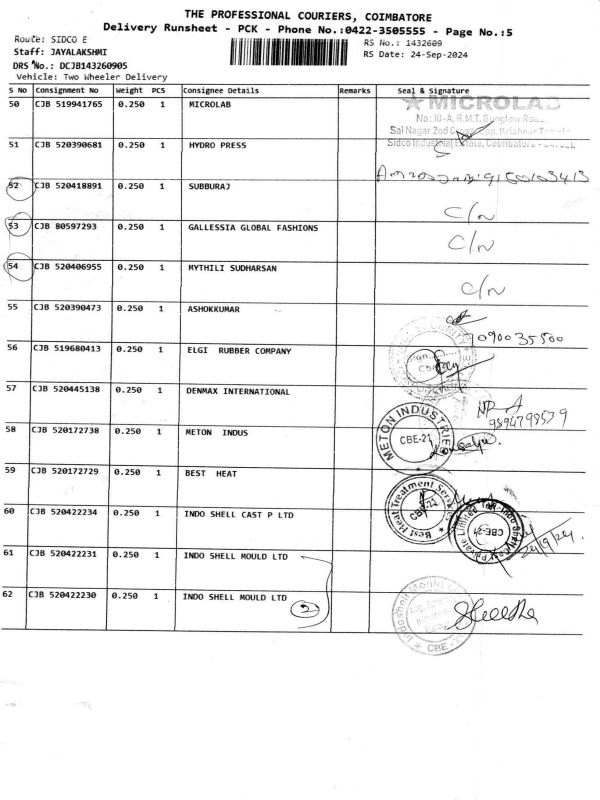 THE PROFESSIONAL COURIERS, COIMBATORE
Delivery Runsheet - PCK - Phone No.:0422-3505555 - Page No.:5
Route: SIDCO E
RS No.: 1432609
Staff: JAYALAKSHMI
RS Date: 24-Sep-2024
DRS No.: DCJB143260905
Vehicle: Two Wheeler Delivery
S No Consignment No Weight PCS Consignee Details Remarks Seal & Signature
50 CJB 519941765 0.250 1 MICROLAB
★ MICROLAB
No: 10-A, R.M.T. Bunglow Road
Sai Nagar 2nd Cross
Sidco Industrial Estate, Coimbatore
51 CJB 520390681 0.250 1 HYDRO PRESS
52 CJB 520418891 0.250 1 SUBBURAJ C/N
53 CJB 80597293 0.250 1 GALLESSIA GLOBAL FASHIONS C/N
54 CJB 520406955 0.250 1 MYTHILI SUDHARSAN C/N
55 CJB 520390473 0.250 1 ASHOKKUMAR
56 CJB 519680413 0.250 1 ELGI RUBBER COMPANY
57 CJB 520445138 0.250 1 DENMAX INTERNATIONAL
58 CJB 520172738 0.250 1 METON INDUS
METON INDUSTRIES
CBE-21
59 CJB 520172729 0.250 1 BEST HEAT
Best Heat Treatment Services
CBE-21
60 CJB 520422234 0.250 1 INDO SHELL CAST P LTD
CBE-21
24/9/24
61 CJB 520422231 0.250 1 INDO SHELL MOULD LTD
62 CJB 520422230 0.250 1 INDO SHELL MOULD LTD 2
Indoshell Mould
CBE-21